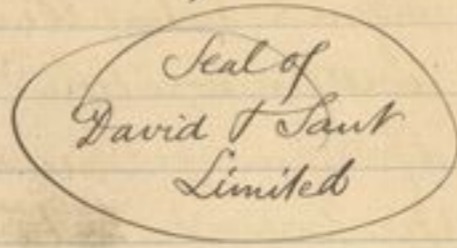 Seal of
David T Sant
Limited